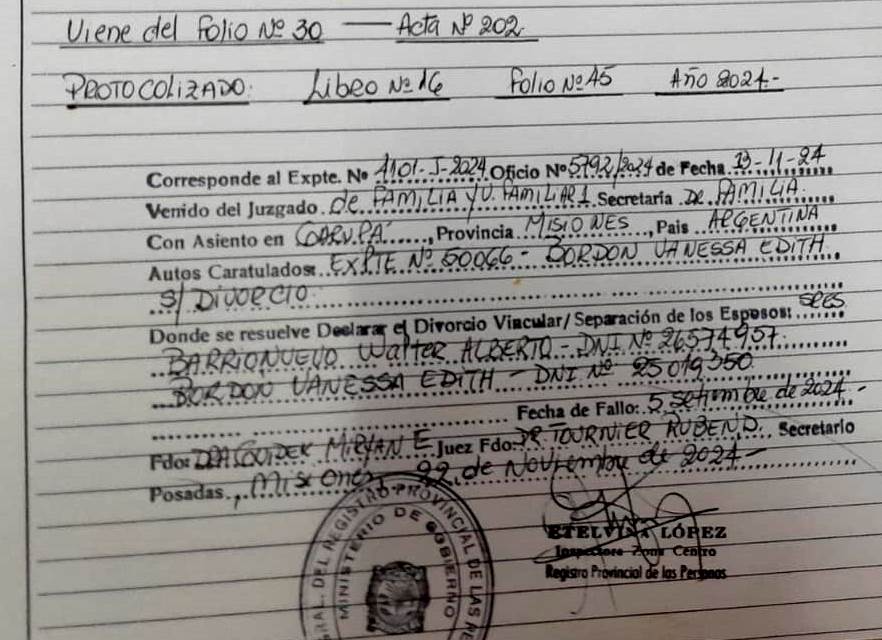 Viene del Folio Nº 30 — Acta Nº 202
PROTOCOLIZADO: Libro Nº 16 Folio Nº 45 Año 2024.-
Corresponde al Expte. Nº 1101-J-2024 Oficio Nº 5792/2024 de Fecha 13-11-24
Venido del Juzgado de FAMILIA y V. FAMILIAR 1 Secretaría DE FAMILIA
Con Asiento en GARUPA, Provincia MISIONES, Pais ARGENTINA
Autos Caratulados: EXPTE Nº 50066 - BORDON VANESSA EDITH
S/ DIVORCIO
Donde se resuelve Declarar el Divorcio Vincular/Separación de los Esposos: SRES
BARRIONUEVO Walter ALBERTO - DNI Nº 26574957
BORDON VANESSA EDITH - DNI Nº 25019350
Fecha de Fallo: 5 setiembre de 2024.-
Fdo: DRA MIRYAN E Juez Fdo: DR TOURNIER RUBEN D. Secretario
Posadas, Misiones, 22 de Noviembre de 2024-
ETELVINA LÓPEZ
Inspectora Zona Centro
Registro Provincial de las Personas
RAL. DEL REGISTRO PROVINCIAL DE LAS PE
MINISTERIO DE GOBIERNO